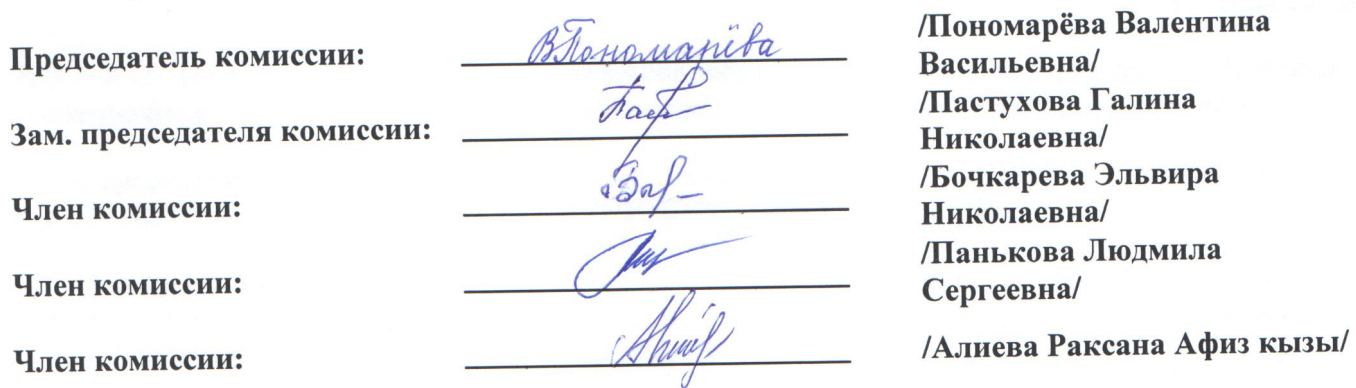 Председатель комиссии: ВПономарёва /Пономарёва Валентина
Васильевна/
Зам. председателя комиссии: /Пастухова Галина
Николаевна/
Член комиссии: /Бочкарева Эльвира
Николаевна/
Член комиссии: /Панькова Людмила
Сергеевна/
Член комиссии: /Алиева Раксана Афиз кызы/